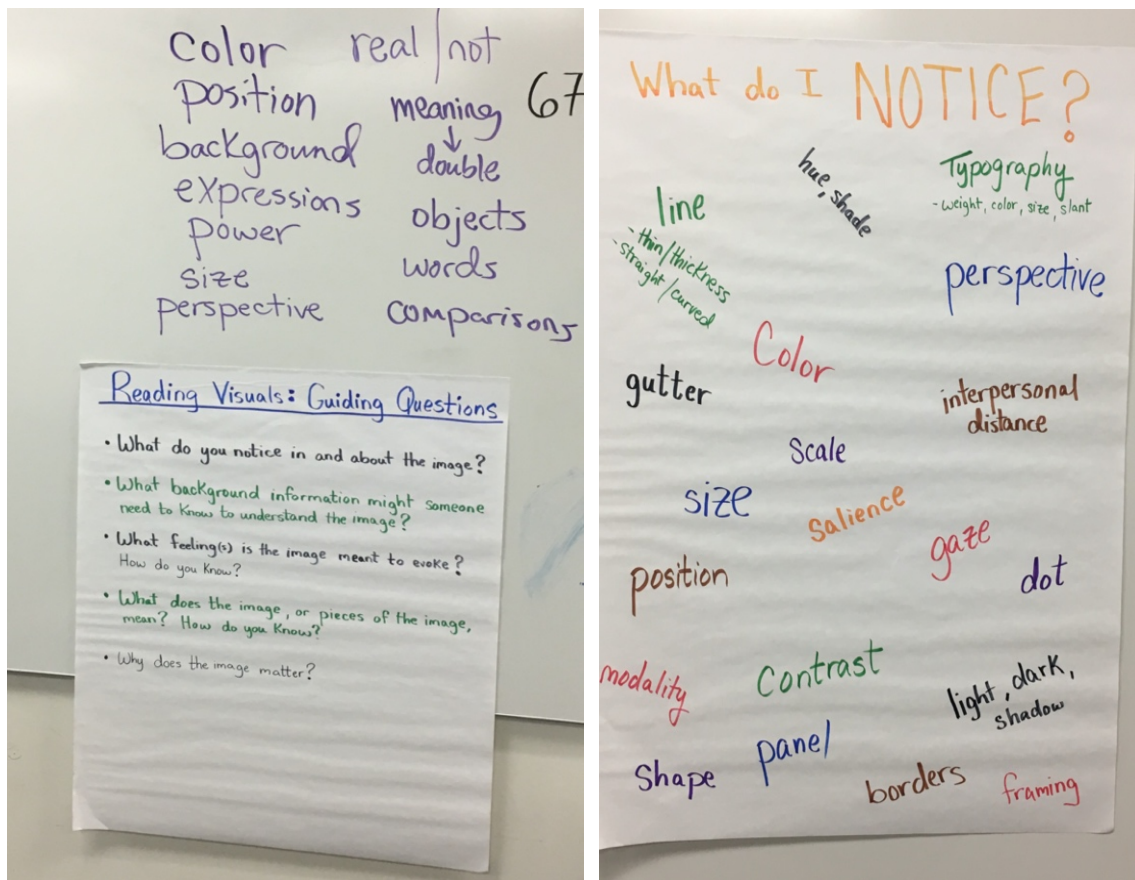 color real/not
position meaning 67
↓
background double
expressions objects
power
size words
perspective comparisons
Reading Visuals: Guiding Questions
• What do you notice in and about the image?
• What background information might someone
need to know to understand the image?
• What feeling(s) is the image meant to evoke?
How do you know?
• What does the image, or pieces of the image,
mean? How do you know?
• Why does the image matter?
What do I NOTICE?
hue, shade
Typography
- weight, color, size, slant
line
- thin/thickness
- straight/curved
perspective
Color
gutter
interpersonal
distance
Scale
size
Salience
gaze
position
dot
modality
Contrast
light, dark,
shadow
panel
Shape
borders
framing